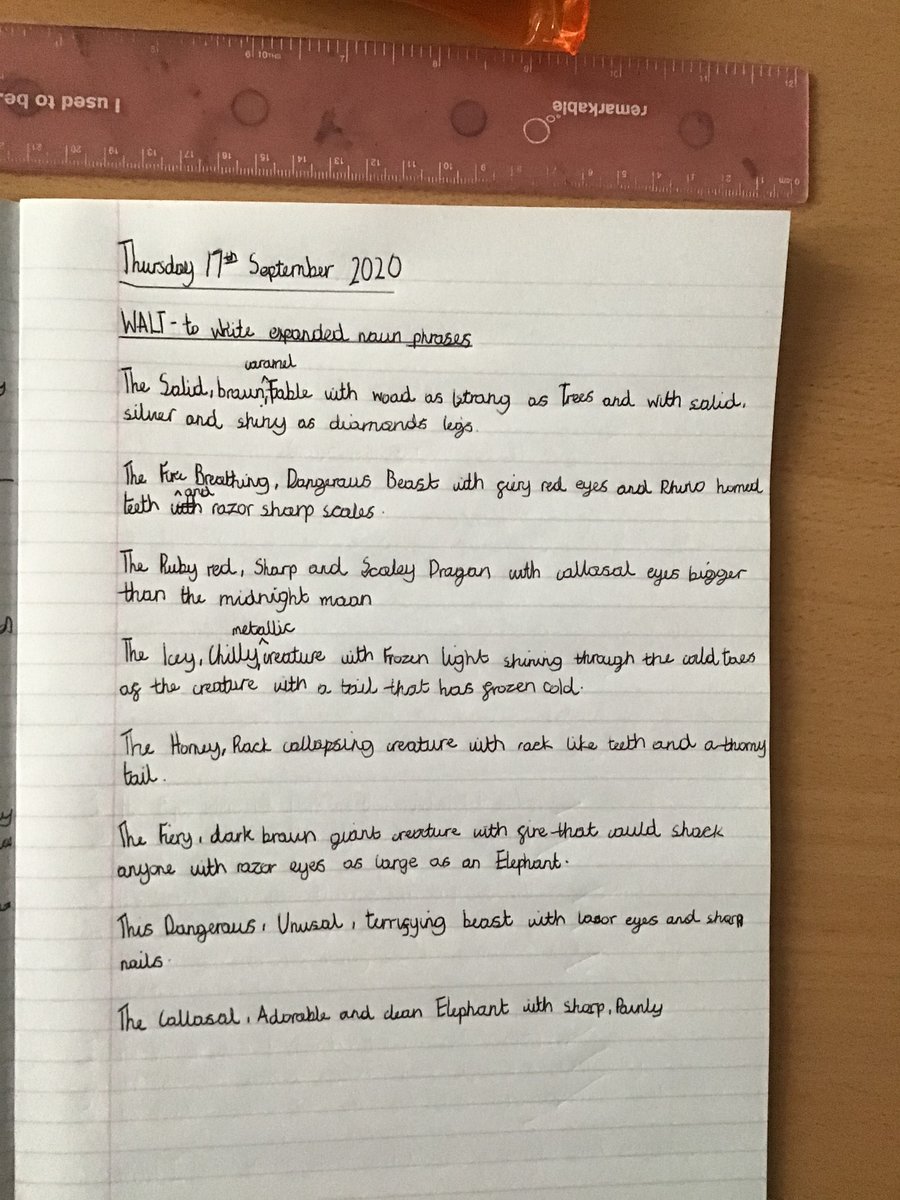 I used to be
remarkable
Thursday 17th September 2020
WALT - to write expanded noun phrases
caramel
The Solid, brown, Table with wood as strong as Trees and with solid,
silver and shiny as diamonds legs.
The Fire Breathing, Dangerous Beast with fiery red eyes and Rhino horned
and
teeth with razor sharp scales.
The Ruby red, Sharp and Scaley Dragon with collosal eyes bigger
than the midnight moon
metallic
The Icey, Chilly, creature with Frozen light shining through the cold toes
of the creature with a tail that has frozen cold.
The Horney, Rock collapsing creature with rock like teeth and a thorny
tail.
The Fiery, dark brown giant creature with fire that could shock
anyone with razor eyes as large as an Elephant.
This Dangerous, Unusal, terrifying beast with lasor eyes and sharp
nails.
The Collosal, Adorable and clean Elephant with sharp, Pointy